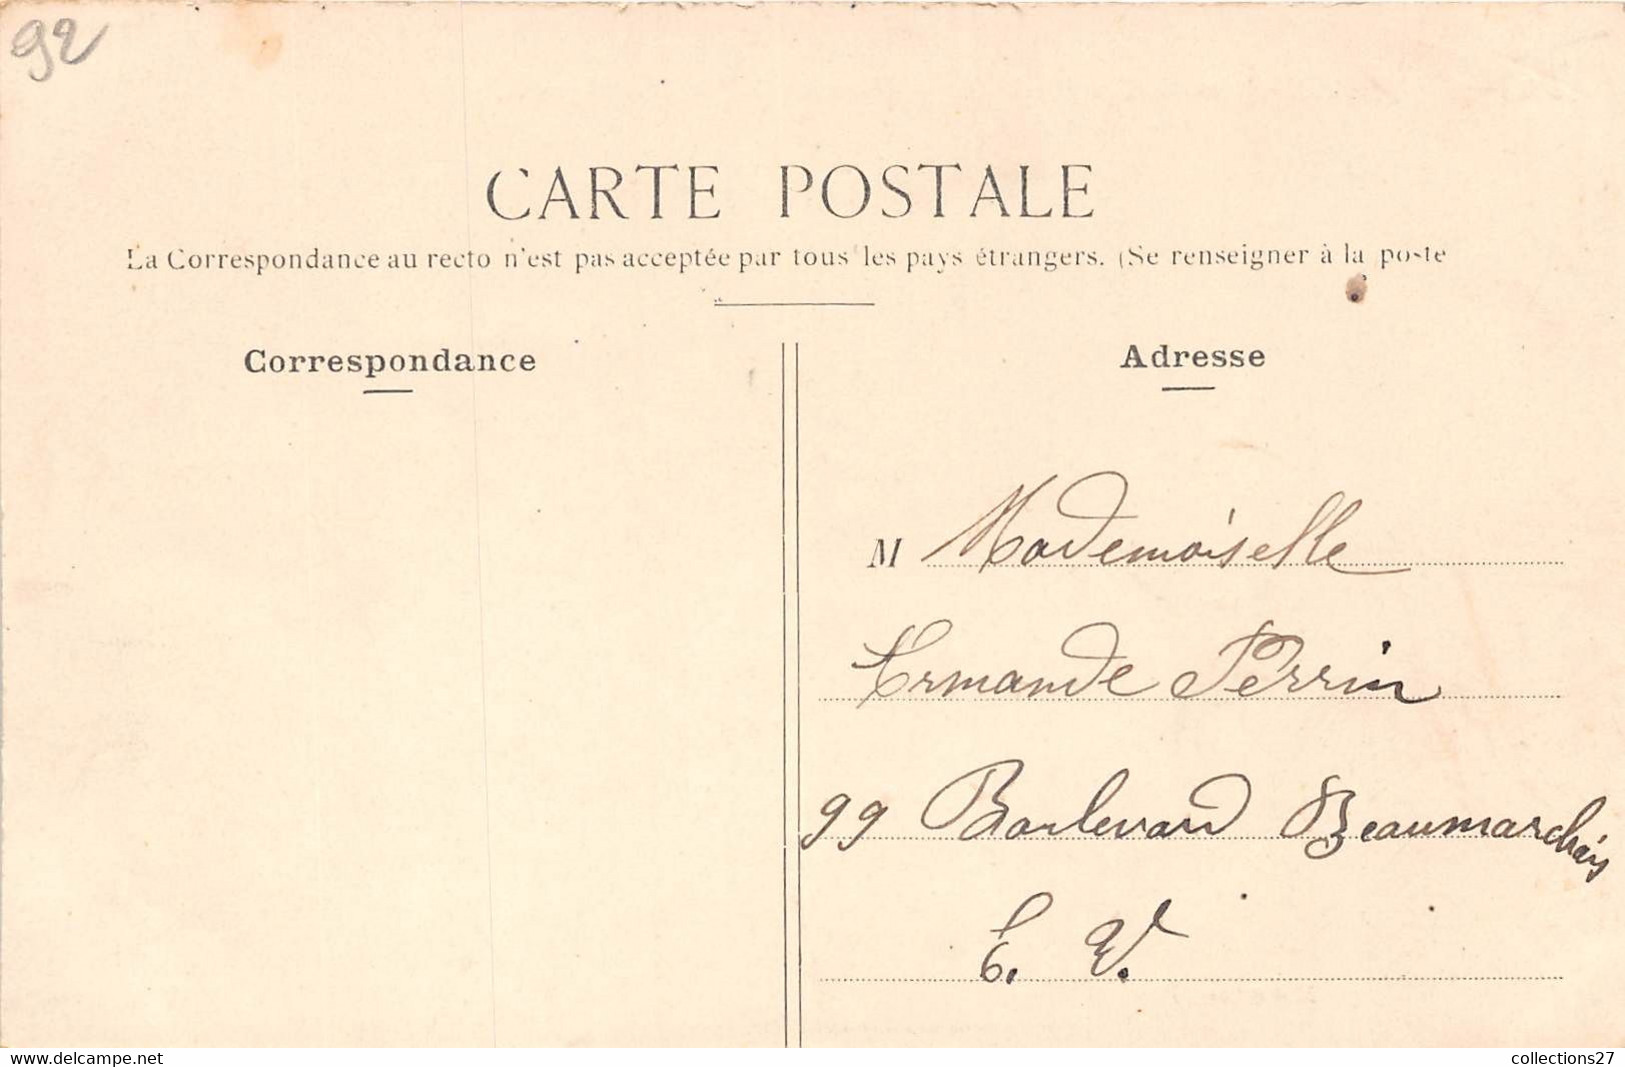 92
CARTE POSTALE
La Correspondance au recto n'est pas acceptée par tous les pays étrangers. (Se renseigner à la poste
Correspondance
Adresse
M Mademoiselle
Armande Perrin
99 Boulevard Beaumarchais
E. V.
www.delcampe.net
collections27